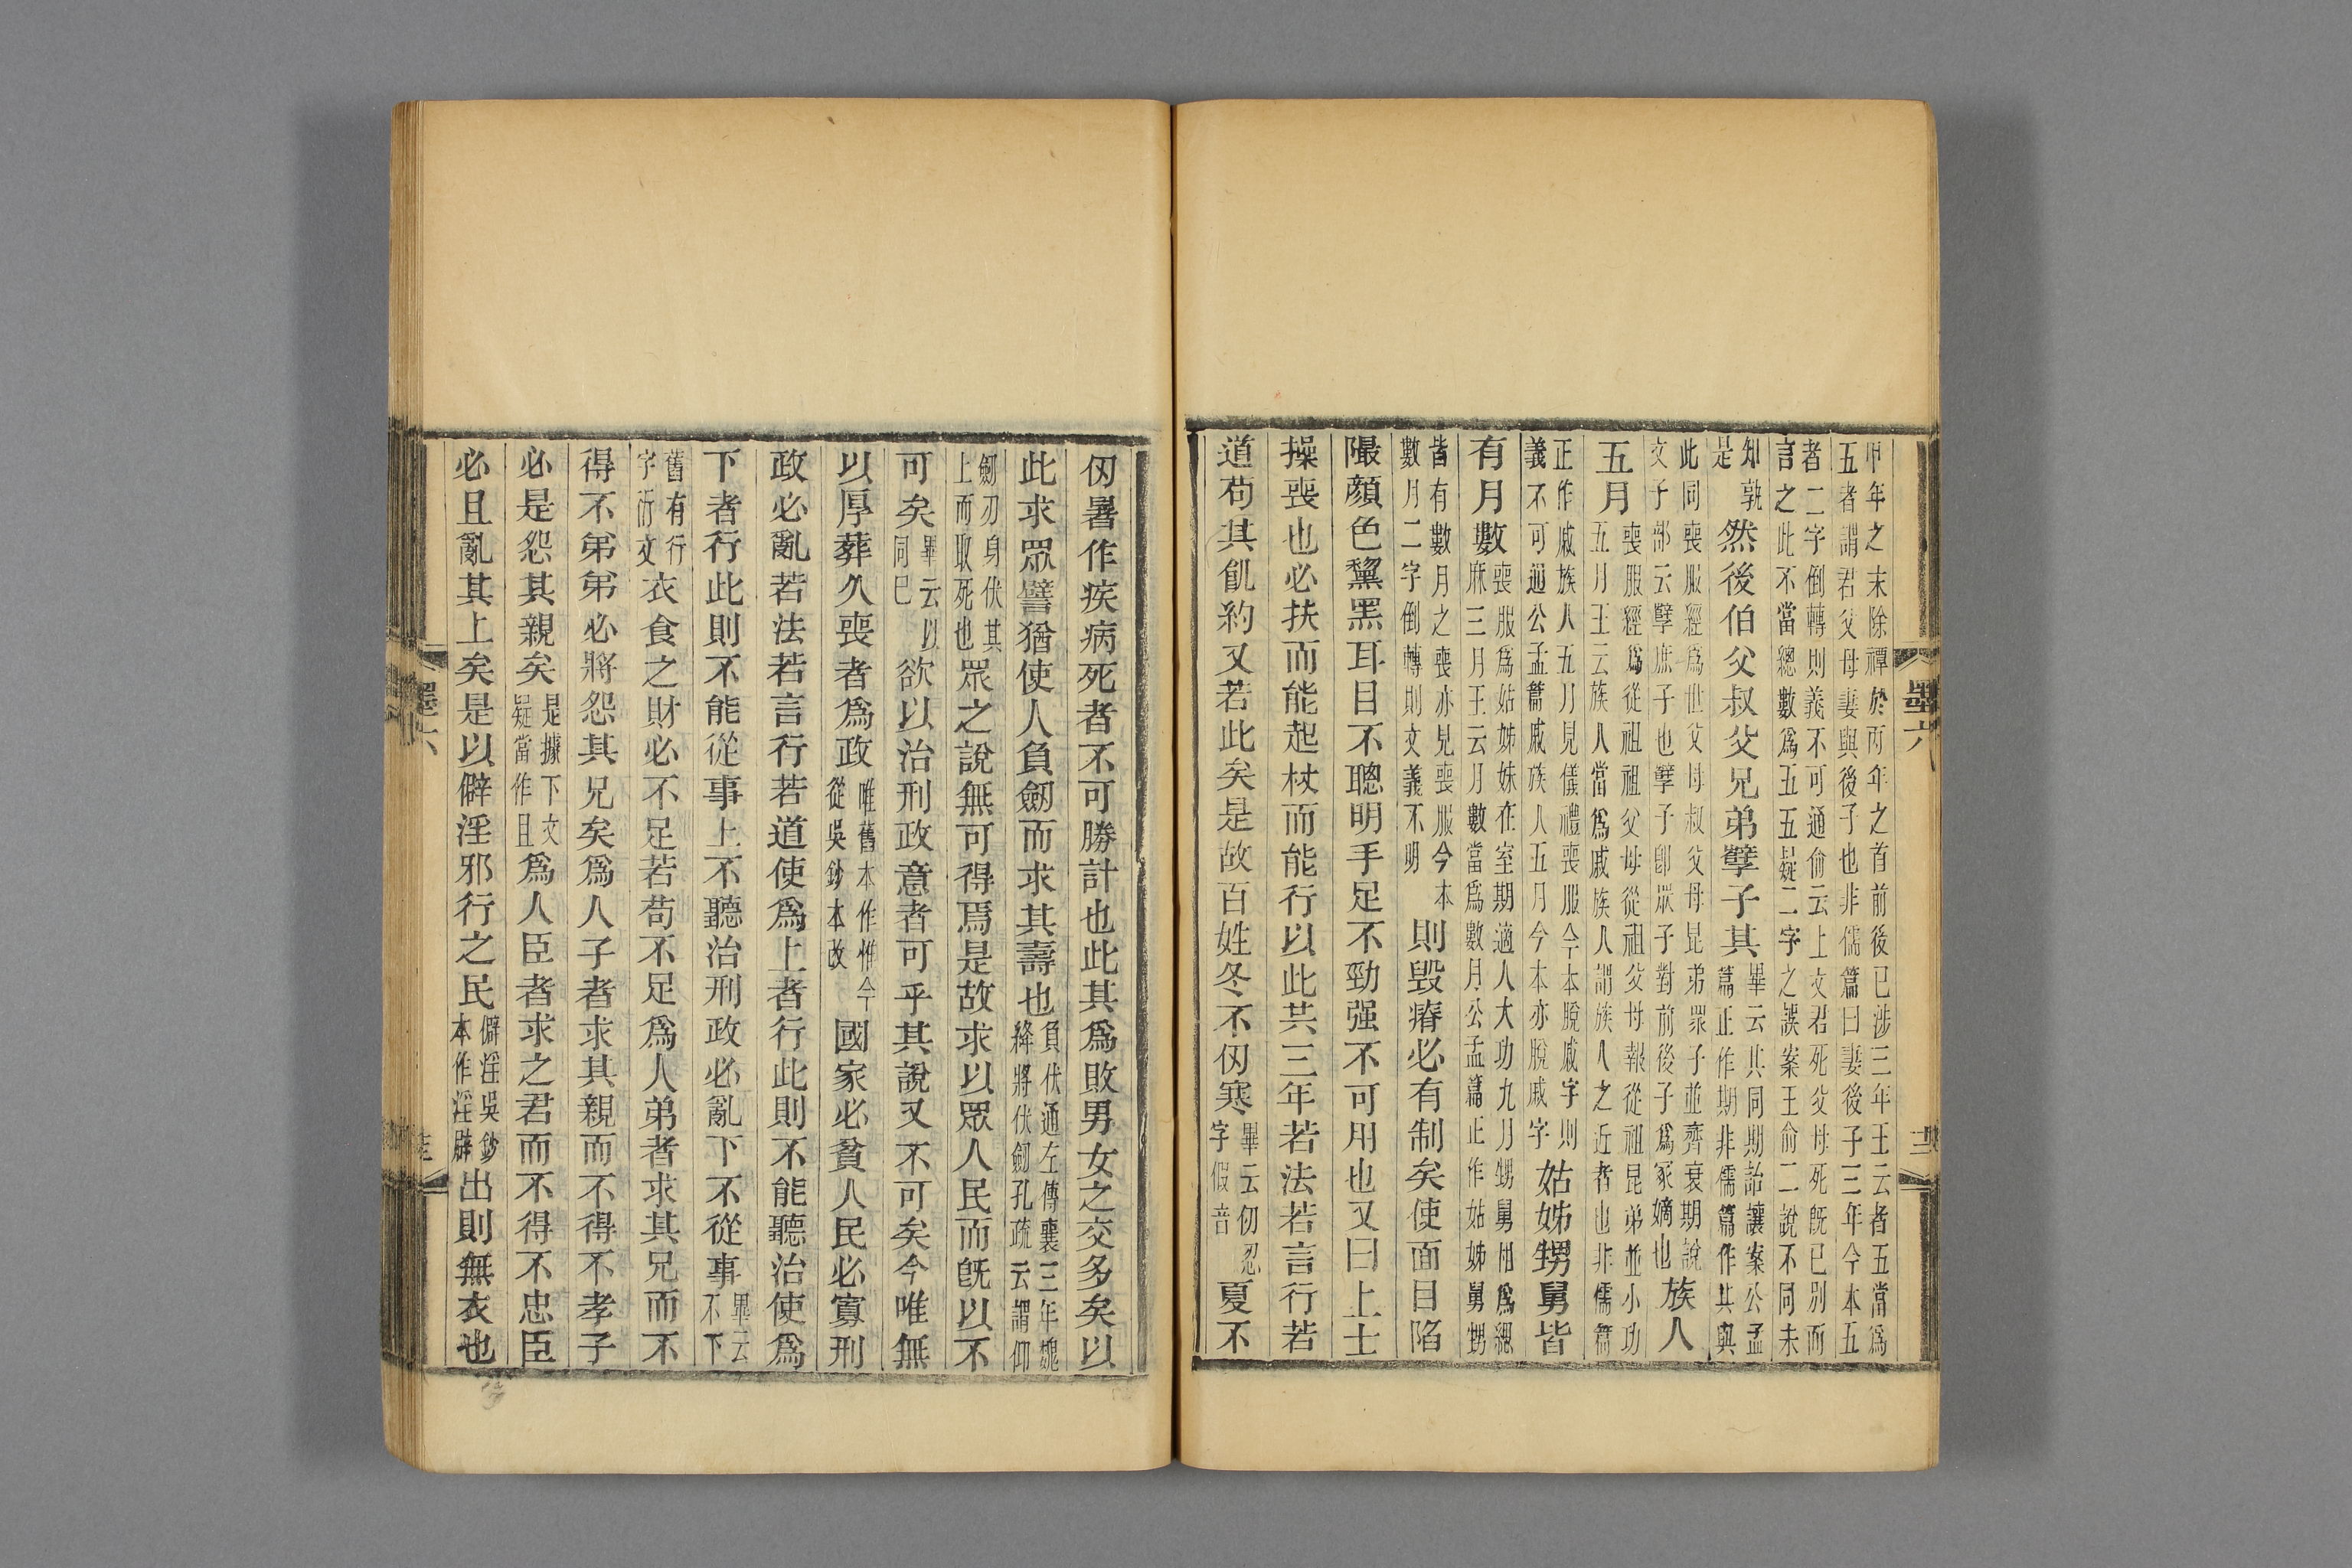 中年之末除禫於兩年之首前後已涉三年王云者五當爲
五者謂君父母妻與後子也非儒篇曰妻後子三年今本五
者二字倒轉則義不可通俞云上文君死父母死旣已別而
言之此不當總數爲五五疑二字之誤案王俞二說不同未
知孰是然後伯父叔父兄弟孼子其畢云其同期詒讓案公孟篇正作期非儒篇作其與
此同喪服經爲世父母叔父母昆弟眾子並齊衰期說文子部云孼庶子也孼子卽眾子對前後子爲冢嫡也族人
五月喪服經爲從祖祖父母從祖父母報從祖昆弟並小功五月王云族人當爲戚族人謂族人之近者也非儒篇
正作戚族人五月見儀禮喪服今本脫戚字則義不可通公孟篇戚族人五月今本亦脫戚字姑姊甥舅皆
有月數喪服爲姑姊妹在室期適人大功九月甥舅相爲緦麻三月王云月數當爲數月公孟篇正作姑姊舅甥
皆有數月之喪亦見喪服今本數月二字倒轉則文義不明則毀瘠必有制矣使面目陷
㒈顏色黧黑耳目不聰明手足不勁强不可用也又曰上士
操喪也必扶而能起杖而能行以此共三年若法若言行若
道苟其飢約又若此矣是故百姓冬不仞寒畢云仞忍字假音夏不
仞暑作疾病死者不可勝計也此其爲敗男女之交多矣以
此求眾譬猶使人負劒而求其壽也負伏通左傳襄三年魏絳將伏劒孔疏云謂仰
劒刃身伏其上而取死也眾之說無可得焉是故求以眾人民而旣以不
可矣畢云以同已欲以治刑政意者可乎其說又不可矣今唯無
以厚葬久喪者爲政唯舊本作惟今從吳鈔本改國家必貧人民必寡刑
政必亂若法若言行若道使爲上者行此則不能聽治使爲
下者行此則不能從事上不聽治刑政必亂下不從事畢云不下
舊有行字衍文衣食之財必不足若苟不足爲人弟者求其兄而不
得不弟弟必將怨其兄矣爲人子者求其親而不得不孝子
必是怨其親矣是據下文疑當作且爲人臣者求之君而不得不忠臣
必且亂其上矣是以僻淫邪行之民僻淫吳鈔本作淫辟出則無衣也
墨六